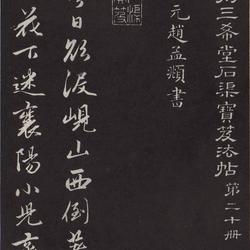 三希堂石渠寶笈法帖第二十册
元趙孟頫書
日欲没峴山西倒著
花下迷襄陽小兒齊